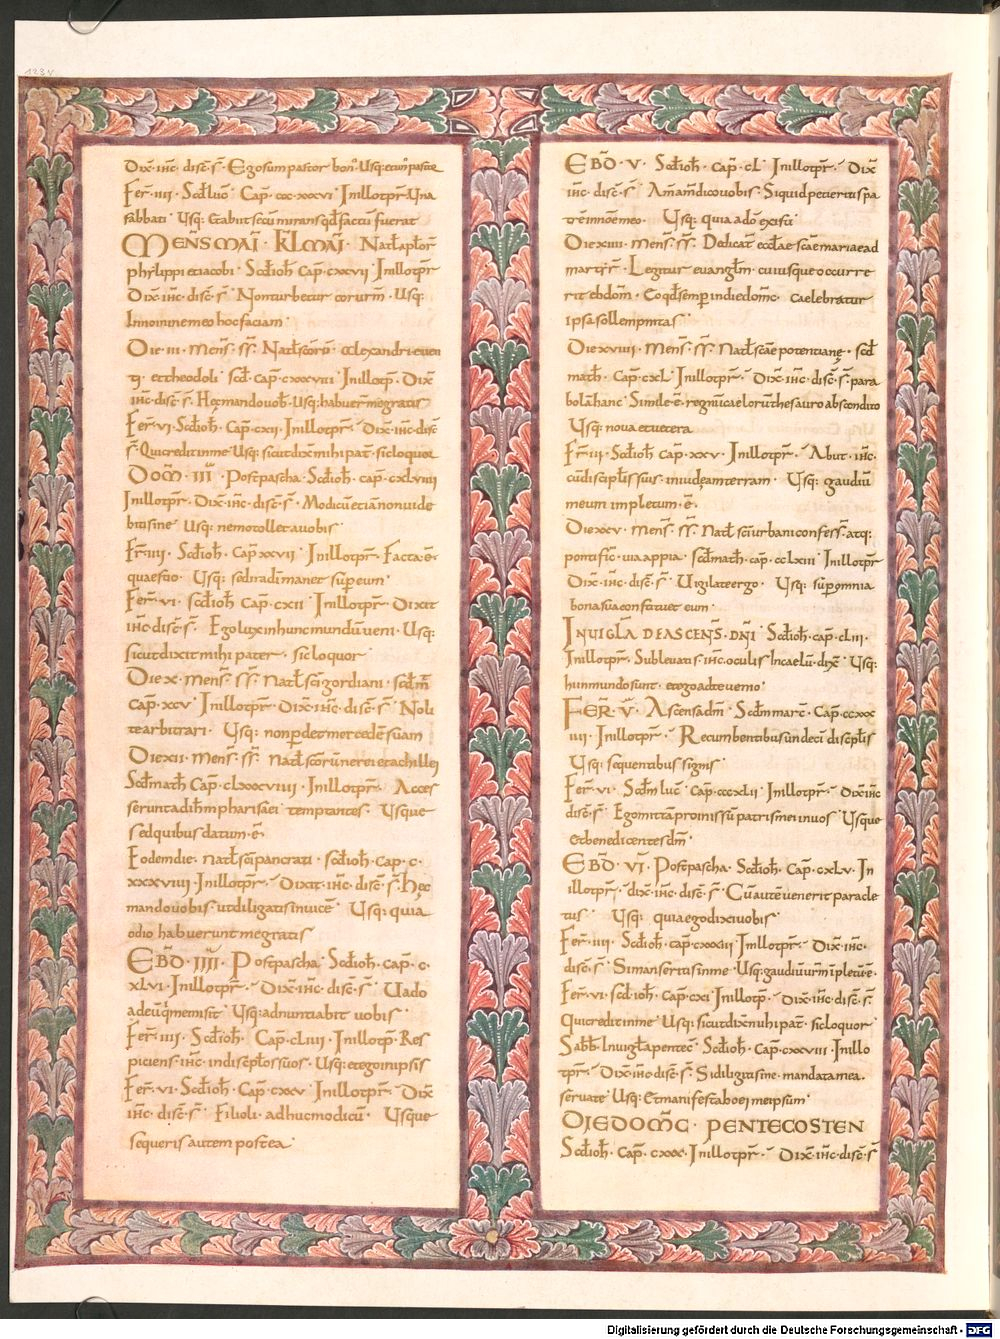 123v
Dix̄· ih̄c· disc̄· s̄· Ego sum pastor bon᷒· Usq; et cum pastor
Fer̄· IIII· Scd̄ luc̄· Cap̄· CCCXXXVI· In illo tp̄r· Una
sabbati· Usq; & abiit secū mirans qd̄ factū fuerat·
MENS̄ MAĪ· KL̄ MAĪ· Nat̄ ap̄lor̄
phylippi et iacobi· Scd̄ ioh̄· Cap̄· CXXVII· In illo tp̄r
Dix̄· ih̄c· disc̄· s̄· Non turbetur cor ur̄m· Usq;
In nomine meo hoc faciam·
Die· III· Mens̄· ss̄· Nat̄ sc̄orū· Alexandri euen
tī· et theodoli· Scd̄· Cap̄· CXXXVIII· In illo tp̄· Dix̄
ih̄c· disc̄· s̄· Hęc mando uob̄· Usq; habuer̄ me gratis
Fer̄· VI· Scd̄ ioh̄· Cap̄· CXII· In illo tp̄r· Dix̄· ih̄c· disc̄
s̄· Qui credit in me· Usq; sicut dix̄ mihi pat̄· sic loquor
DOM̄· III· Post pascha· Scd̄ ioh̄· cap̄· CXLVIIII
In illo tp̄r· Dix̄· ih̄c· disc̄· s̄· Modicū et iā non uide
bitis me· Usq; nemo tollet a uobis·
Fr̄· IIII· Scd̄ ioh̄· Cap̄ XXVII· In illo tp̄r̄· Facta ē
quaestio· Usq; sed ira dī manet sup̄ eum·
Fer̄· VI· Scd̄ ioh̄· Cap̄· CXII· In illo tp̄r̄· Dixit
ih̄c· disc̄· s̄· Ego lux in hunc mundū ueni· Usq;
sicut dixit mihi pater· sic loquor·
Die X· Mens̄· ss̄· Nat̄ sc̄i gordiani· scd̄ m̄
Cap̄· XCV· In illo tp̄r· Dix̄· ih̄c· disc̄· s̄· Noli
te arbitrari· Usq; non p̄det mercedē suam·
Die XII· Mens̄· ss̄· Nat̄ sc̄orū nerei et achillei
Scd̄ math̄ Cap̄· CLXXXVIIII· In illo tp̄r· Acces
serunt ad ih̄m pharisaei temptantes· Usque
sed quibus datum ē·
Eodem die· Nat̄ sc̄i pancrati· Scd̄ ioh̄· Cap̄· C·
XXXVIIII· In illo tp̄r· Dixit· ih̄c· disc̄· s̄· Hęc
mando uobis· ut diligatis inuicē· Usq; quia
odio habuerunt me gratis·
EBD̄· IIII· Post pascha· Scd̄ ioh̄· cap̄· C·
XLVI· In illo tp̄r· Dix̄· ih̄c· disc̄· s̄· Uado
ad eū qui me misit· Usq; adnuntiabit uobis·
Fer̄· IIII· Scd̄ ioh̄· Cap̄· CLIIII· In illo tp̄· Res
piciens· ih̄c· in discip̄los suos· Usq; et ego in ipsis
Fer̄· VI· Scd̄ ioh̄· Cap̄· CXXV· In illo tp̄r· Dix̄
ih̄c· disc̄· s̄· Filioli· adhuc modicū· Usque
sequeris autem postea·
EBD̄· V· Scd̄ ioh̄· Cap̄· CL· In illo tp̄r· Dix̄
ih̄c· disc̄· s̄· Am̄ am̄ dico uobis· Si quid petieritis pa
trē in noē meo· Usq; quia a dō existi·
Die XIII· Mens̄· ss̄· Dedicat̄ eccl̄ae sc̄ae mariae ad
martyr̄· Legitur euangl̄m· cuiusque occurre
rit ebdom̄· Eo qd̄ semp̄ in die dom̄c· caelebratur
ipsa sollempnitas·
Die XVIIII· Mens̄· ss̄· Nat̄ sc̄ae potentianę· Scd̄
math̄· Cap̄· CXL· In illo tp̄r· Dix̄· ih̄c· disc̄· s̄· para
bolā hanc· Simile· ē· regnū caeloru᷒ thesauro abscondito
Usq; noua et uetera·
Fr̄· III· Scd̄ ioh̄· Cap̄· XXV· In illo tp̄r· Abiit· ih̄c·
cū discip̄lis suis· in iudęam terram· Usq; gaudiū
meum impletum· ē·
Die XXV· Mens̄· ss̄· Nat̄ sc̄i urbani confess̄· atq;
pontific̄· uia appia· Scd̄ math̄· cap̄· CCLXIII· In illo tp̄r
Dix̄· ih̄c· disc̄· s̄· Uigilate ergo· Usq; sup̄ omnia
bona sua constituet eum·
IN UIGL̄A DE ASCENS̄· DN̄I· Scd̄ ioh̄· cap̄· CLIII·
In illo tp̄r· Subleuatis· ih̄c· oculis In caelū· dix̄· Usq;
hi in mundo sunt· et ego ad te uenio·
FER̄· V̄· Ascensa dn̄i· Scd̄m marc̄· Cap̄· CCXXX
IIII· In illo tp̄r· Recumbentibus undeci discip̄lis
Usq; sequentibus signis·
Fer̄· VI· Scd̄m luc̄· Cap̄· CCCXLII· In illo tp̄r· Dix̄ ih̄c
disc̄· s̄· Ego mittā promissū patris mei in uos· Usque
& benedicentes dm̄·
EBD̄· VI· Post pascha· Scd̄ ioh̄· Cap̄· CXLV· In
illo tp̄r· dix̄· ih̄c· disc̄· s̄· Cū autē uenerit paracle
tus· Usq; quia ego dixi uobis·
Fer̄· IIII· Scd̄ ioh̄· cap̄· CXXXIII· In illo tp̄r· Dix̄· ih̄c·
disc̄· s̄· Si manseritis in me· Usq; gaudiū ur̄m īpletū· ē·
Fer̄· VI· scd̄· ioh̄· Cap̄· CXI· In illo tp̄· Dix̄· ih̄c· disc̄· s̄·
Qui credit in me· Usq; sicut dix̄ mihi pat̄· sic loquor·
Sabb̄· In uigl̄a pentec̄· Scd̄ ioh̄· Cap̄· CXXVIII· In illo
tp̄r· Dix̄· ih̄c disc̄· s̄· Si diligitis me· mandata mea·
seruate· Usq; Et manifestabo ei meipsum·
DIE DOM̄C· PENTECOSTEN
Scd̄ ioh̄· Cap̄· CXXX· In illo tp̄r· Dix̄· ih̄c· disc̄· s̄·
Digitalisierung gefördert durch die Deutsche Forschungsgemeinschaft - DFG